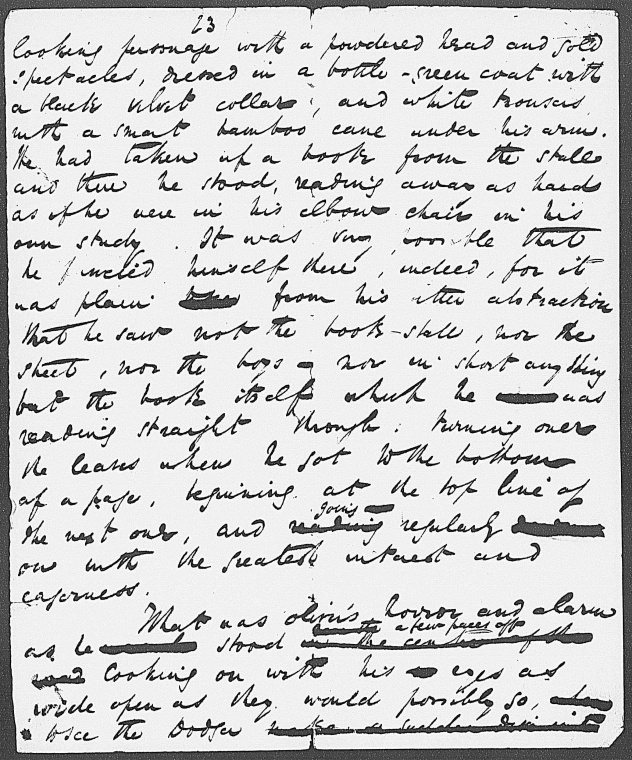 23
looking personage with a powdered head and gold
spectacles, dressed in a bottle-green coat with
a black velvet collar; and white trousers
with a smart bamboo cane under his arm.
He had taken up a book from the stall
and there he stood, reading away as hard
as if he were in his elbow chair in his
own study. It was very possible that
he fancied himself there, indeed, for it
was plain from his utter abstraction
that he saw not the book-stall, nor the
street, nor the boys nor in short anything
but the book itself which he was
reading straight through: turning over
the leaves when he got to the bottom
of a page, beginning at the top line of
going
the next one, and reading regularly
on with the greatest interest and
eagerness.
What was Oliver's horror and alarm
a few paces off
as he stood in the centre of the
road looking on with his eyes as
wide open as they would possibly go,
to see the Dodger make a sudden